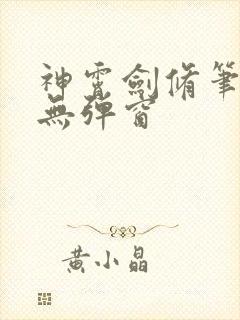 神霄劍脩筆
無彈窗
黃小晶